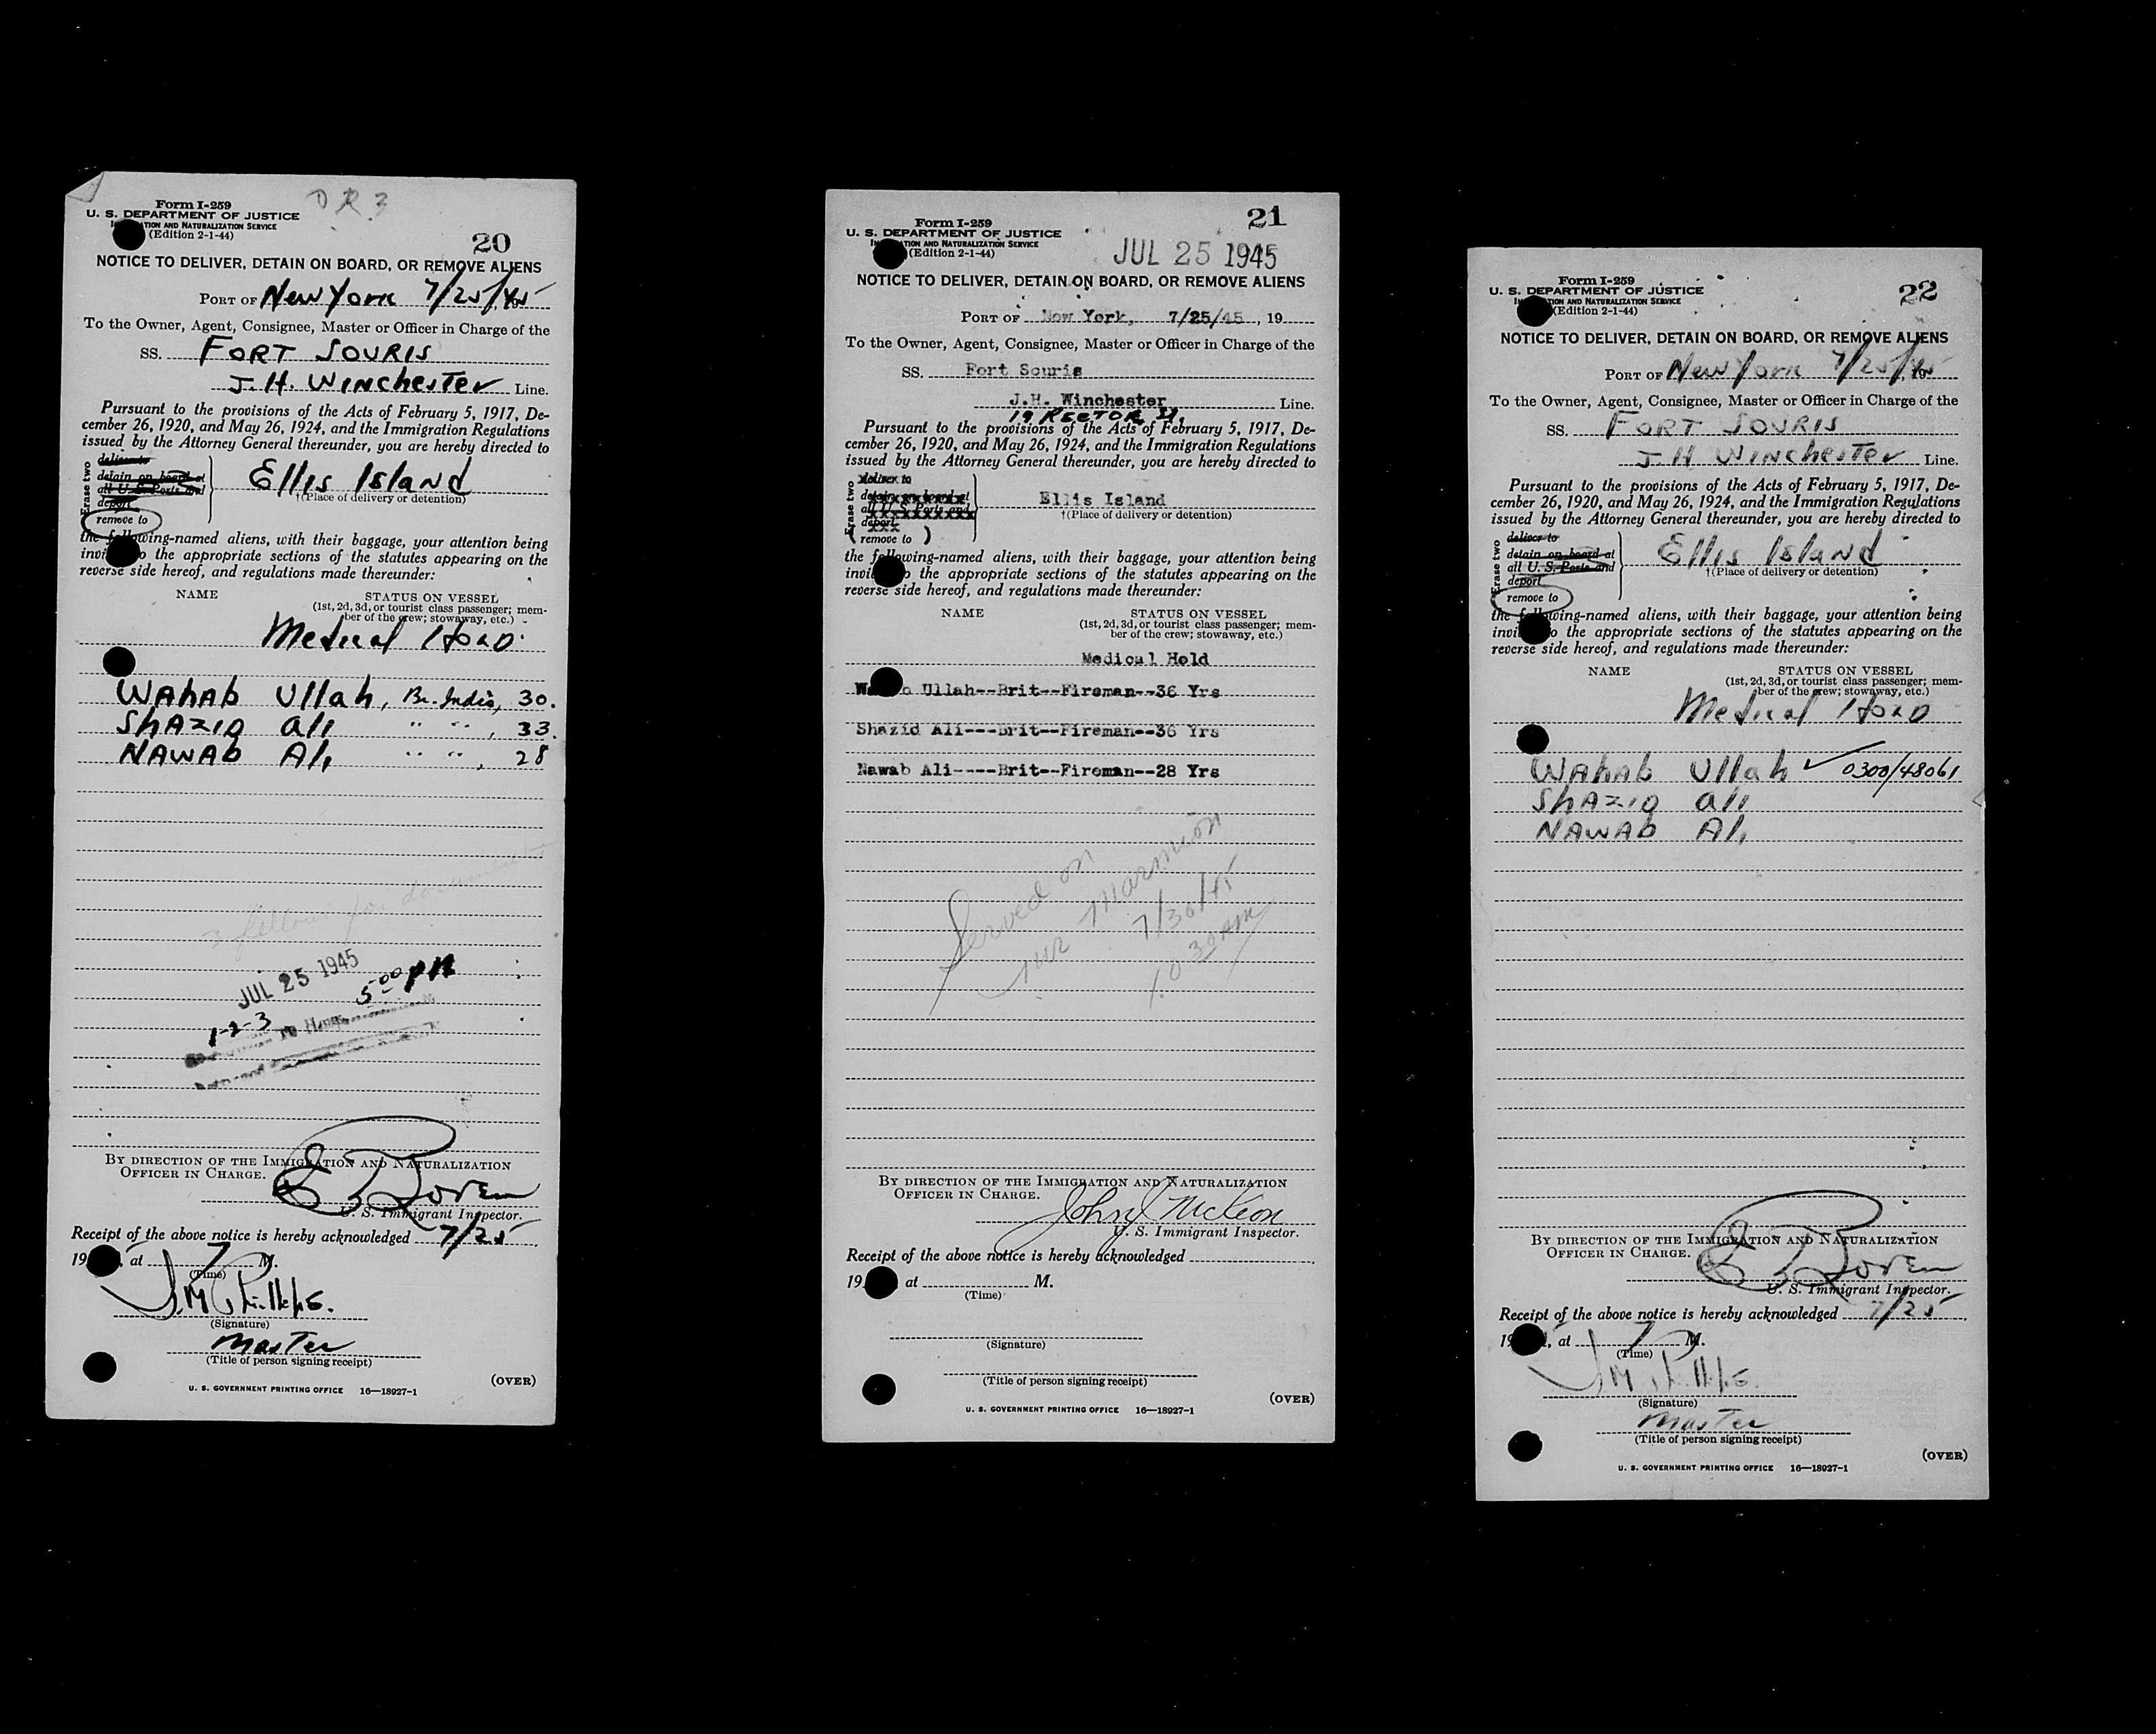 DR3
Form I-259
U. S. DEPARTMENT OF JUSTICE
TION AND NATURALIZATION SERVICE
(Edition 2-1-44)
20
NOTICE TO DELIVER, DETAIN ON BOARD, OR REMOVE ALIENS
PORT OF New York 7/25/45
To the Owner, Agent, Consignee, Master or Officer in Charge of the
SS. FORT SOURIS
J. H. WINCHESTER Line.
Pursuant to the provisions of the Acts of February 5, 1917, De-
cember 26, 1920, and May 26, 1924, and the Immigration Regulations
issued by the Attorney General thereunder, you are hereby directed to
Erase two
deliver to
detain on board at
all U. S. Ports and
deport
remove to
Ellis Island
†(Place of delivery or detention)
the following-named aliens, with their baggage, your attention being
invi o the appropriate sections of the statutes appearing on the
reverse side hereof, and regulations made thereunder:
NAME STATUS ON VESSEL
(1st, 2d, 3d, or tourist class passenger; mem-
ber of the crew; stowaway, etc.)
Medical Hold
WAhAb Ullah, Br. India, 30.
ShAzid Ali " ", 33.
NAWAb Ali " ", 28
3 fellows for
JUL 25 1945 5 00 PM
1-2-3
BY DIRECTION OF THE IMMIGRATION AND NATURALIZATION
OFFICER IN CHARGE.
U. S. Immigrant Inspector.
Receipt of the above notice is hereby acknowledged 7/25
19 , at 7 M.
(Time)
J.M. Phillips.
(Signature)
Master
(Title of person signing receipt)
(OVER)
U. S. GOVERNMENT PRINTING OFFICE 16—18927-1
Form I-259
U. S. DEPARTMENT OF JUSTICE
TION AND NATURALIZATION SERVICE
(Edition 2-1-44)
21
JUL 25 1945
NOTICE TO DELIVER, DETAIN ON BOARD, OR REMOVE ALIENS
PORT OF New York, 7/25/45, 19
To the Owner, Agent, Consignee, Master or Officer in Charge of the
SS. Fort Souris
J.H. Winchester Line.
19 RECTOR St.
Pursuant to the provisions of the Acts of February 5, 1917, De-
cember 26, 1920, and May 26, 1924, and the Immigration Regulations
issued by the Attorney General thereunder, you are hereby directed to
Erase two
deliver to
detain on board at
all U. S. Ports and
deport
( remove to )
Ellis Island
†(Place of delivery or detention)
the following-named aliens, with their baggage, your attention being
invi o the appropriate sections of the statutes appearing on the
reverse side hereof, and regulations made thereunder:
NAME STATUS ON VESSEL
(1st, 2d, 3d, or tourist class passenger; mem-
ber of the crew; stowaway, etc.)
Medical Hold
Ullah--Brit--Fireman--36 Yrs
Shazid Ali---Brit--Fireman--36 Yrs
Nawab Ali----Brit--Fireman--28 Yrs
Served on
Mr Marmion
7/30/45
10 30 AM
BY DIRECTION OF THE IMMIGRATION AND NATURALIZATION
OFFICER IN CHARGE.
John J McKeon
U. S. Immigrant Inspector.
Receipt of the above notice is hereby acknowledged
19 at M.
(Time)
(Signature)
(Title of person signing receipt)
(OVER)
U. S. GOVERNMENT PRINTING OFFICE 16—18927-1
Form I-259
U. S. DEPARTMENT OF JUSTICE
TION AND NATURALIZATION SERVICE
(Edition 2-1-44)
22
NOTICE TO DELIVER, DETAIN ON BOARD, OR REMOVE ALIENS
PORT OF New York 7/25/45
To the Owner, Agent, Consignee, Master or Officer in Charge of the
SS. FORT SOURIS
J. H WINCHESTER Line.
Pursuant to the provisions of the Acts of February 5, 1917, De-
cember 26, 1920, and May 26, 1924, and the Immigration Regulations
issued by the Attorney General thereunder, you are hereby directed to
Erase two
deliver to
detain on board at
all U. S. Ports and
deport
remove to
Ellis Island
†(Place of delivery or detention)
the following-named aliens, with their baggage, your attention being
invi o the appropriate sections of the statutes appearing on the
reverse side hereof, and regulations made thereunder:
NAME STATUS ON VESSEL
(1st, 2d, 3d, or tourist class passenger; mem-
ber of the crew; stowaway, etc.)
Medical Hold
WAhAb Ullah ✓ 0300/48061
ShAzid Ali
NAWAb Ali
BY DIRECTION OF THE IMMIGRATION AND NATURALIZATION
OFFICER IN CHARGE.
U. S. Immigrant Inspector.
Receipt of the above notice is hereby acknowledged 7/25
19 , at 7 M.
(Time)
J.M. Phillips.
(Signature)
Master
(Title of person signing receipt)
(OVER)
U. S. GOVERNMENT PRINTING OFFICE 16—18927-1